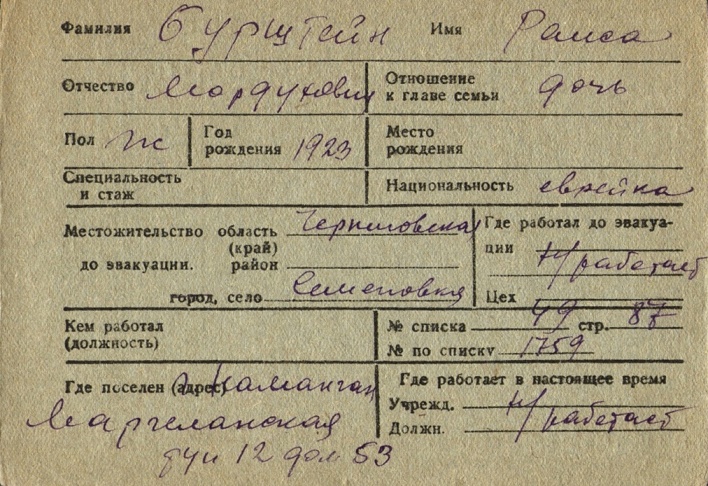 Фамилия Бурштейн Имя Раиса
Отчество Мордухович Отношение к главе семьи дочь
Пол ж Год рождения 1923 Место рождения
Специальность и стаж Национальность еврейка
Местожительство до эвакуации. область (край) Черниговская
район
город, село Семеновка
Где работал до эвакуации н/работает
Цех
Кем работал (должность)
№ списка 49 стр. 87
№ по списку 1759
Где поселен (адрес) г. Наманган
Маргеланская
туп 12 дом 53
Где работает в настоящее время
Учрежд. н/работает
Должн.